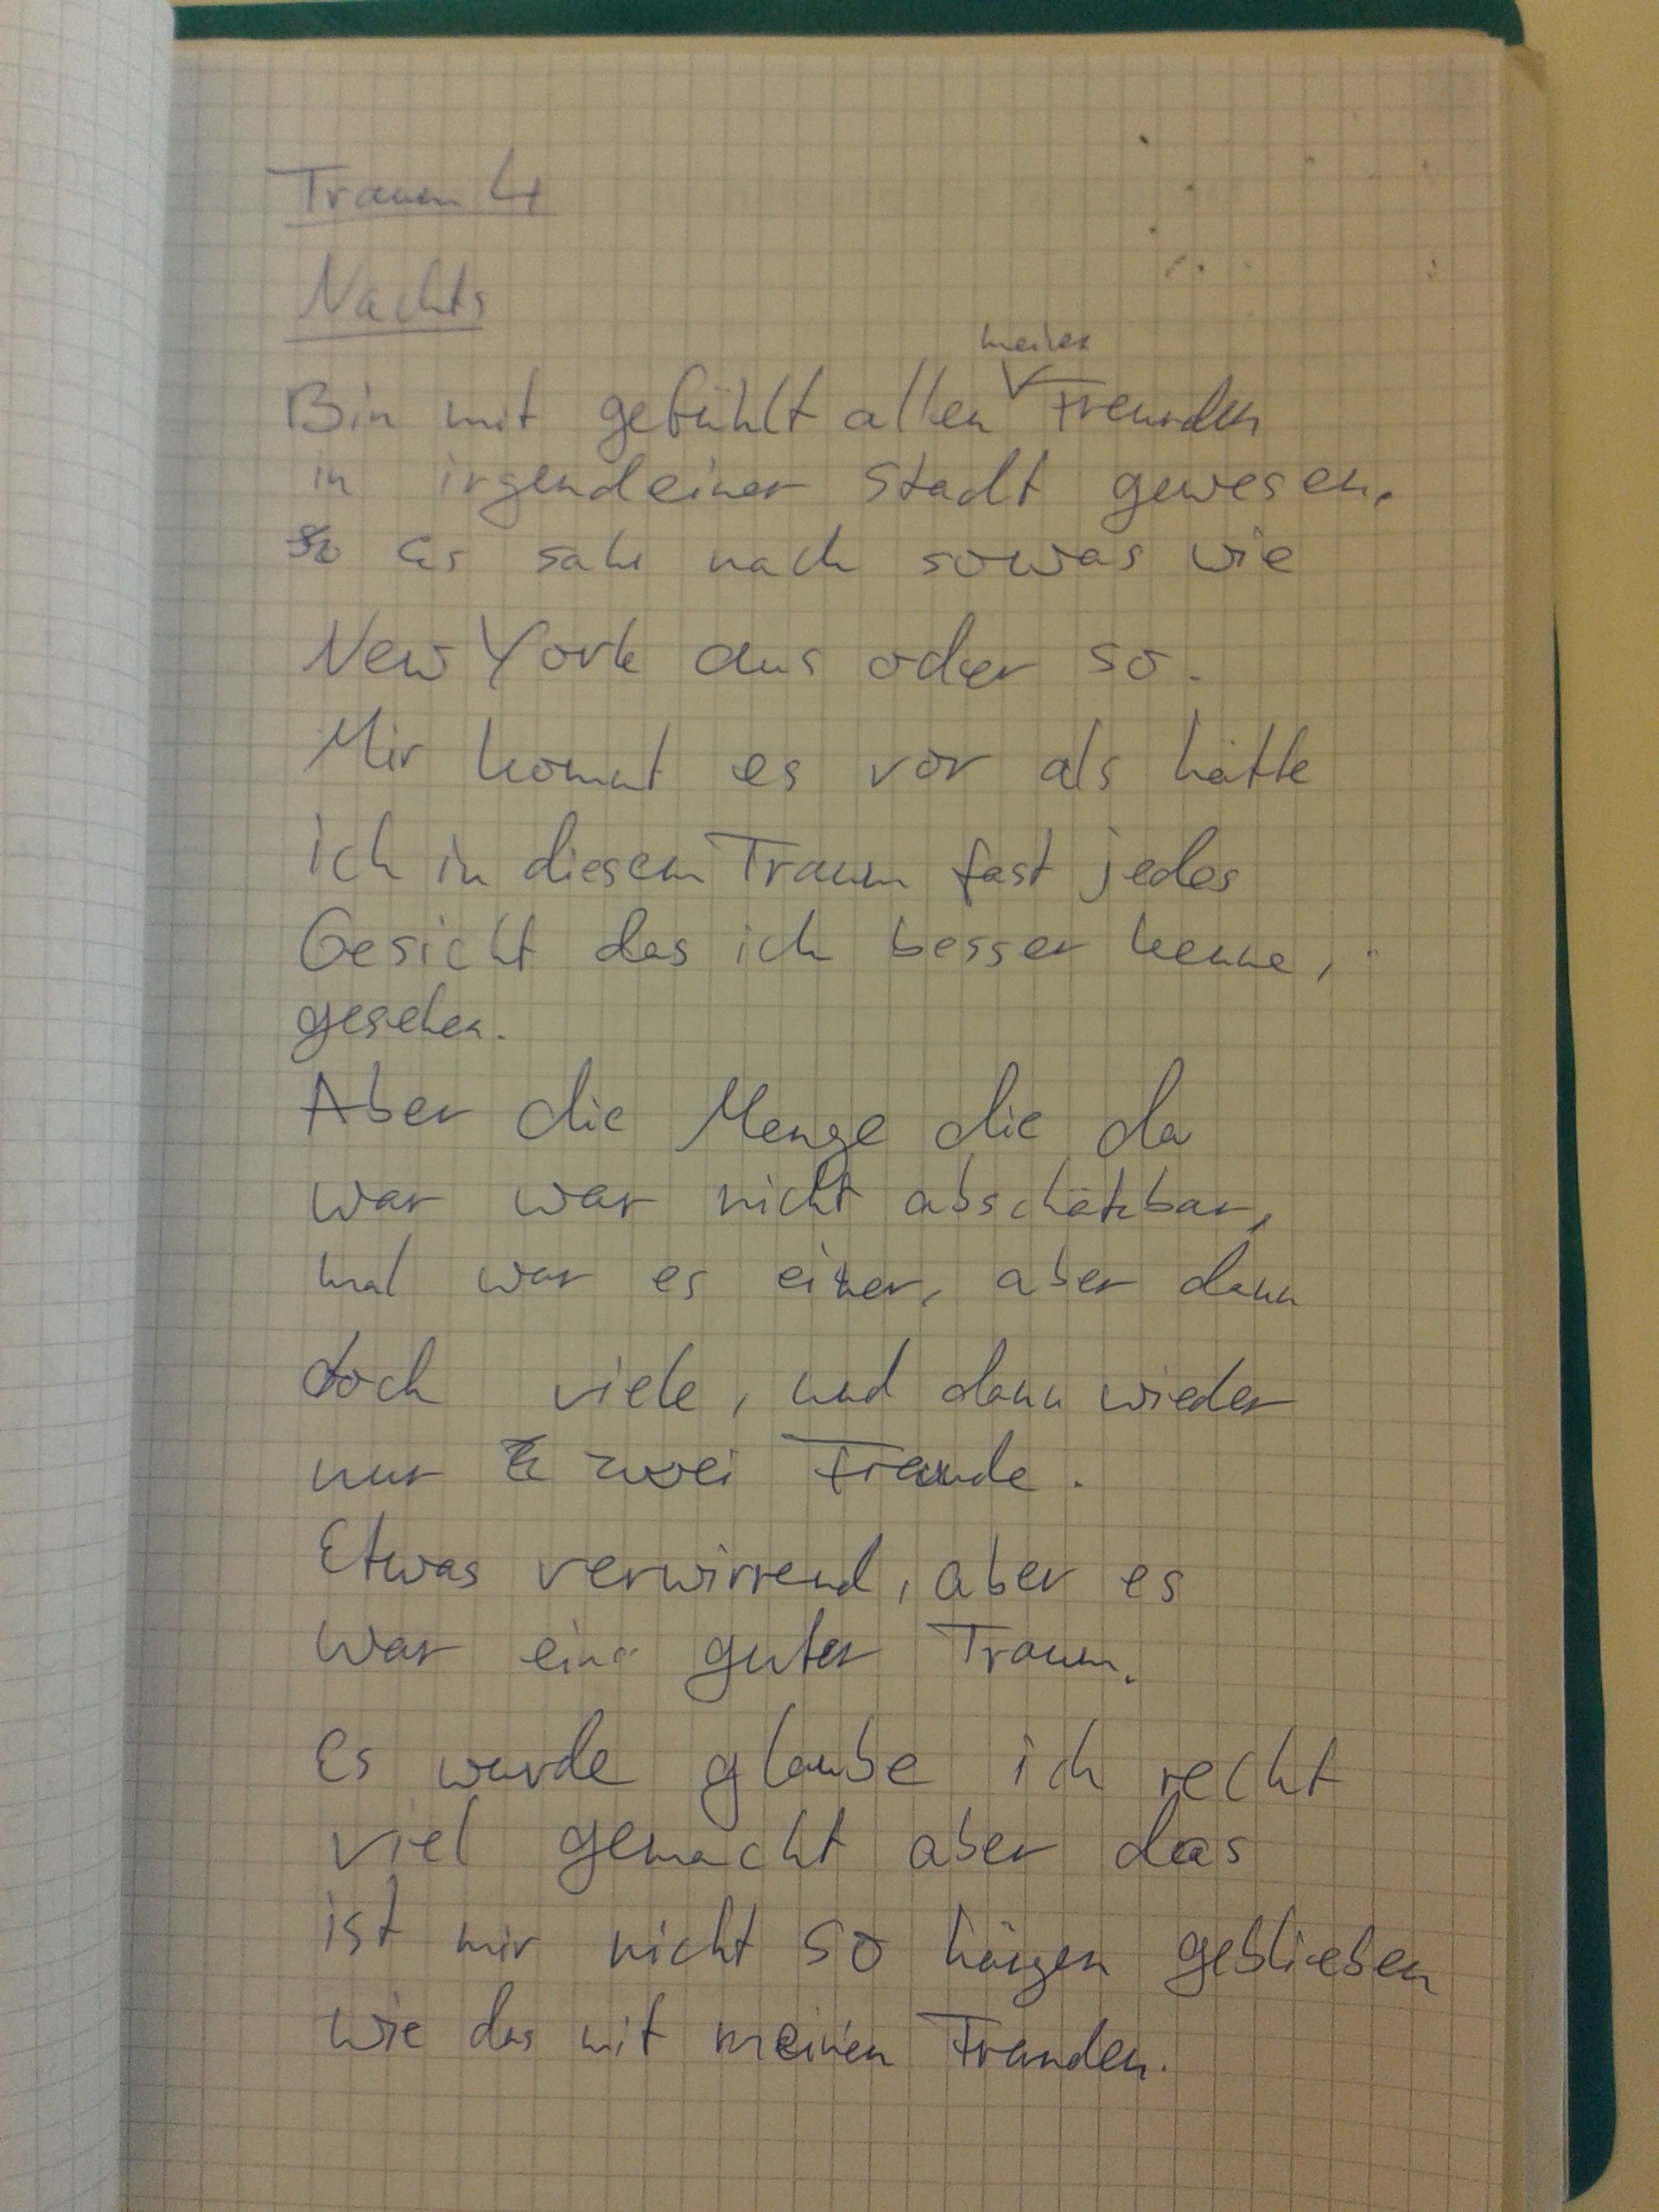 Traum 4
Nachts
meinen
Bin mit gefühlt allen Freunden
in irgendeiner Stadt gewesen.
Es sah nach sowas wie
New York aus oder so.
Mir kommt es vor als hätte
ich in diesem Traum fast jedes
Gesicht das ich besser kenne,
gesehen.
Aber die Menge die da
war war nicht abschätzbar,
mal war es einer, aber dann
doch viele, und dann wieder
nur zwei Freunde.
Etwas verwirrend, aber es
war ein guter Traum.
Es wurde glaube ich recht
viel gemacht aber das
ist mir nicht so hängen geblieben
wie das mit meinen Freunden.